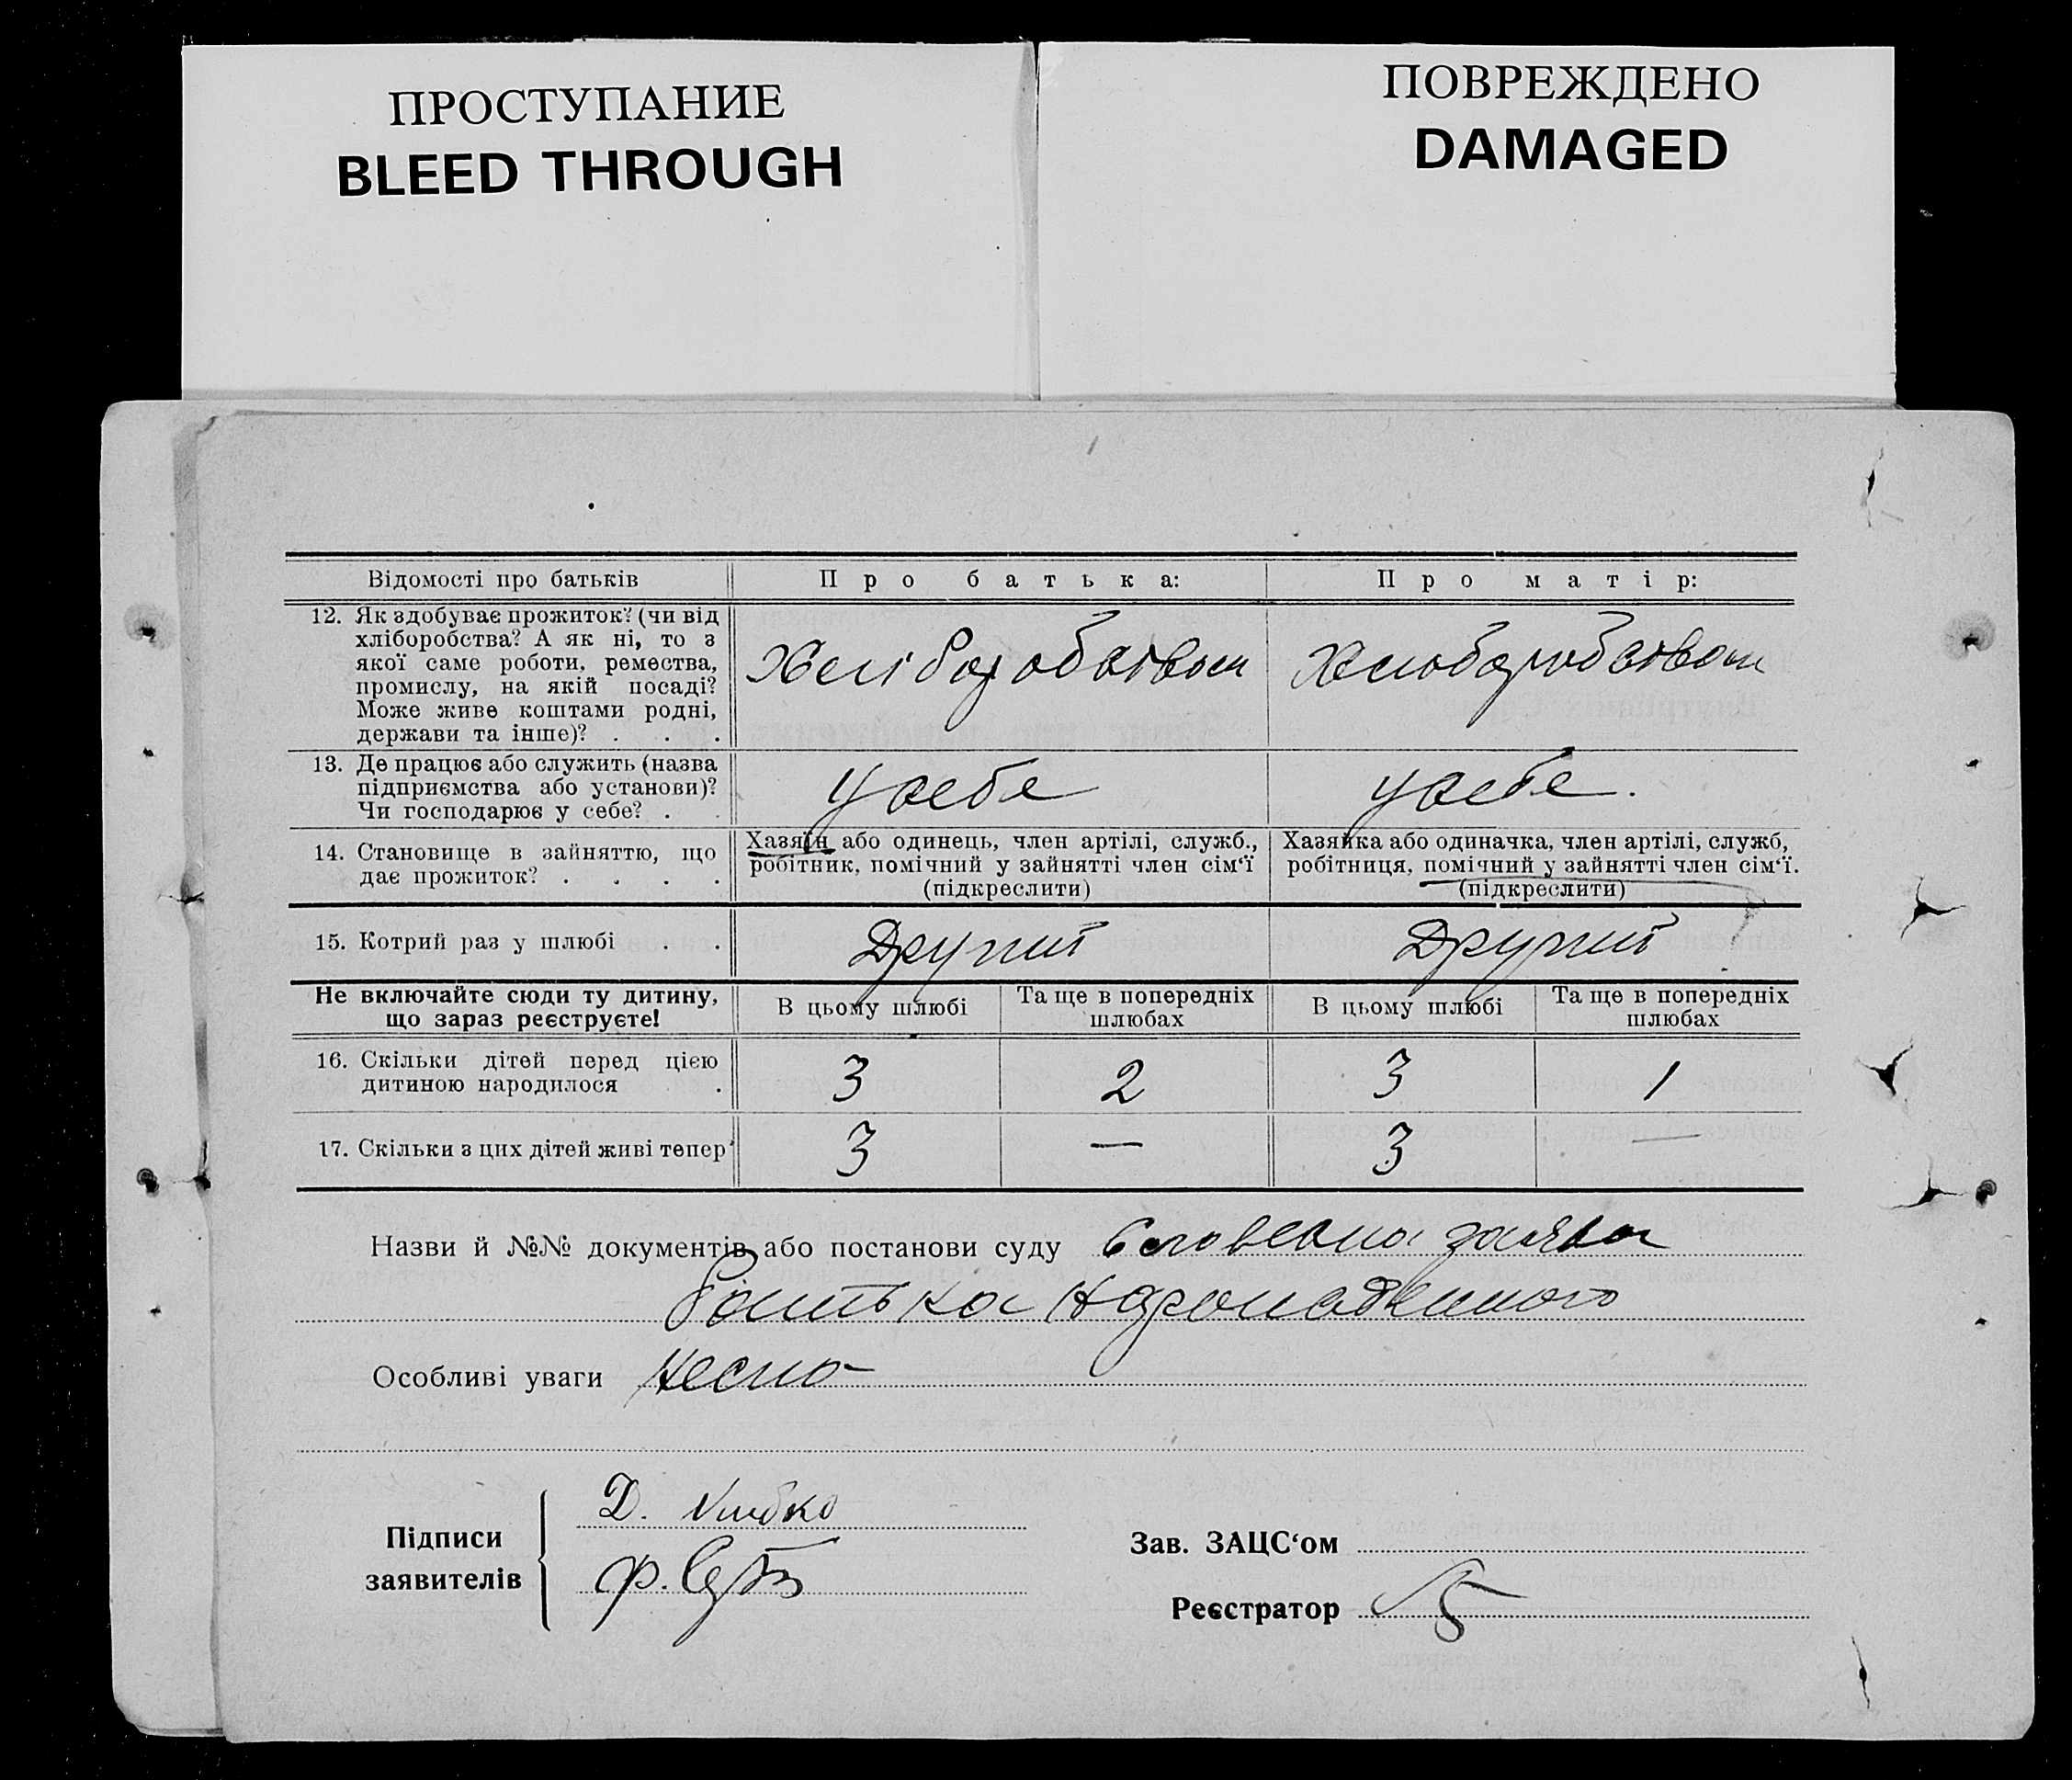 ПРОСТУПАНИЕ
BLEED THROUGH
ПОВРЕЖДЕНО
DAMAGED
Відомості про батьків
Про батька:
Про матір:
12. Як здобуває прожиток? (чи від
хліборобства? А як ні, то з
якої саме роботи, ремества,
промислу, на якій посаді?
Може живе коштами родні,
держави та інше)? . . .
Хліборобством
Хлиборобством
13. Де працює або служить (назва
підприємства або установи)?
Чи господарює у себе? . .
У себе
у себе.
14. Становище в зайняттю, що
дає прожиток? . . . .
Хазяїн або одинець, член артілі, служб.,
робітник, помічний у зайнятті член сім‘ї
(підкреслити)
Хазяйка або одиначка, член артілі, служб,
робітниця, помічний у зайнятті член сім‘ї.
(підкреслити)
15. Котрий раз у шлюбі . .
Другий
Другий
Не включайте сюди ту дитину,
що зараз реєструєте!
В цьому шлюбі
Та ще в попередніх
шлюбах
В цьому шлюбі
Та ще в попередніх
шлюбах
16. Скільки дітей перед цією
дитиною народилося .
3
2
3
1
17. Скільки з цих дітей живі тепер
3
—
3
—
Назви й №№ документів або постанови суду Словесна заява
батька
Особливі уваги
Підписи
заявителів
Д.
Ф.
Зав. ЗАЦС‘ом
Реєстратор